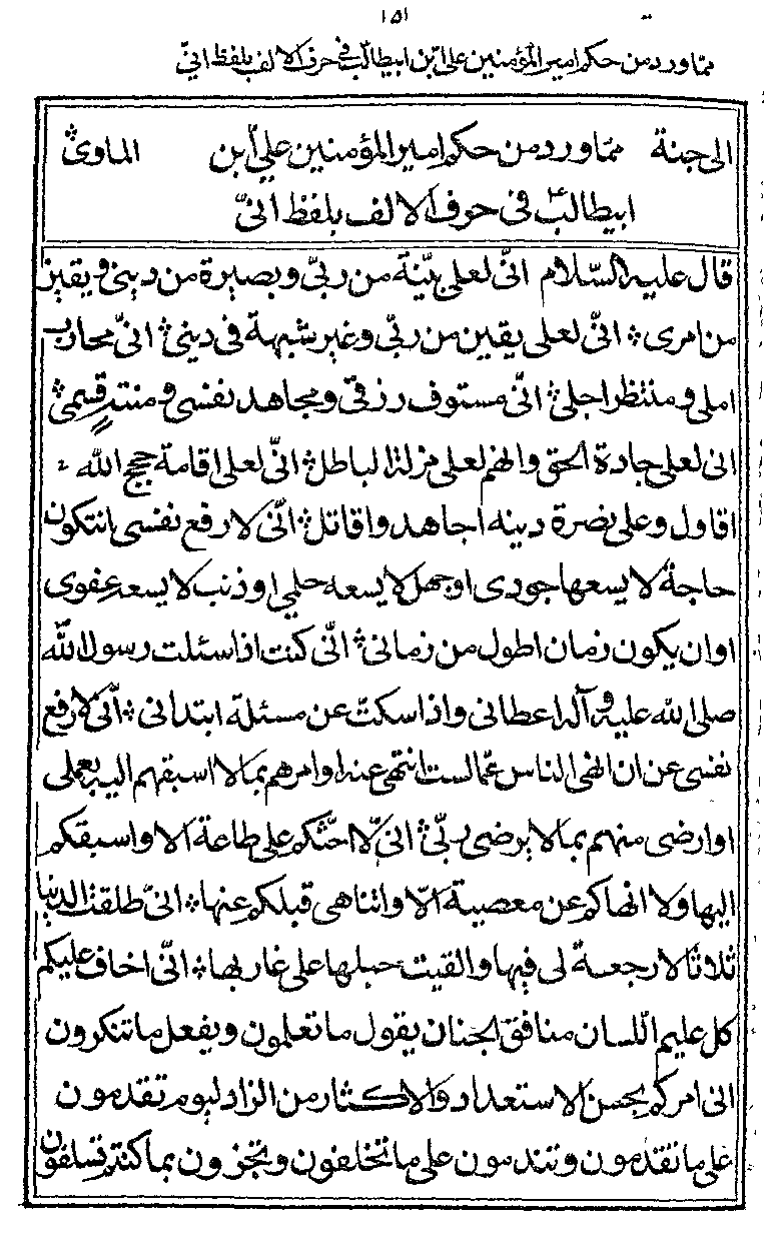 ١٥١
مما ورد من حكم امير المؤمنين على ابن ابيطالب في حرف الالف بلفظ انىّ
الى جنة الماوى
مما ورد من حكم امير المؤمنين علي ابن
ابيطالب ع في حرف الالف بلفظ انىّ
قال عليه السّلام انىّ لعلى بيّنة من ربىّ وبصيرة من دينى ويقين
من امرى انىّ لعلى يقين من ربىّ وغير شبهة فى دينى انىّ محارب
املى ومنتظر اجلى انىّ مستوف رزقى ومجاهد نفسى ومنته قسمى
انى لعلى جادة الحق وانهم لعلى مزلة الباطل انىّ لعلى اقامة حجج الله
اقاول وعلى نصرة دينه اجاهد واقاتل انىّ لارفع نفسى ان تكون
حاجة لا يسعها جودى او جهل لا يسعه حلمى او ذنب لا يسعه عفوى
او ان يكون زمان اطول من زمانى انىّ كنت اذا سئلت رسول الله
صلى الله عليه وآله اعطانى واذا سكتّ عن مسئلة ابتدانى انىّ لارفع
نفسى عن ان انهى الناس عمّا لست انتهى عنه او امرهم بما لا اسبقهم اليه بعملى
او ارضى منهم بما لا يرضى ربىّ انىّ لا احثّكم على طاعة الا واسبقكم
اليها ولا انهاكم عن معصية الاّ واتناهى قبلكم عنها انىّ طلقت الدنيا
ثلاثا لا رجعة لى فيها والقيت حبلها على غاربها انىّ اخاف عليكم
كل عليم اللّسان منافق الجنان يقول ما تعلمون ويفعل ما تنكرون
انى امركم بحسن الاستعداد والاكثار من الزاد ليوم تقدمون
على ما تقدمون وتندمون على ما تخلفون وتجزون بما كنتم تسلفون